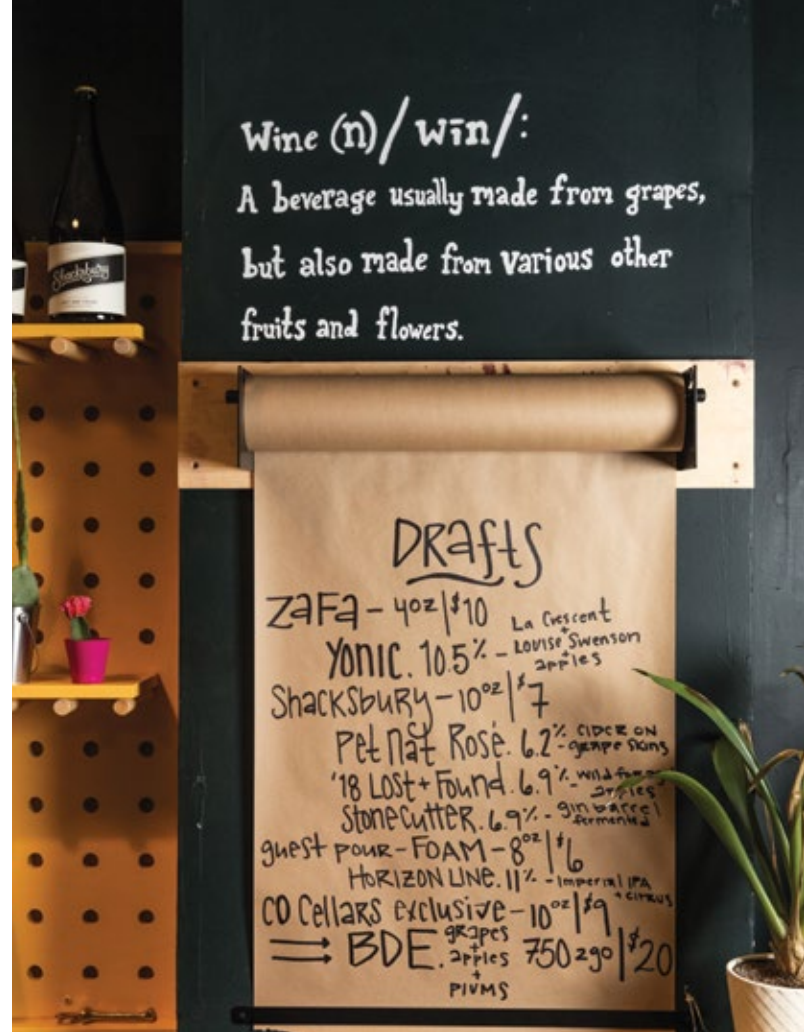 Wine (n)/wīn/:
A beverage usually made from grapes,
but also made from various other
fruits and flowers.
Shacksbury
DRafts
ZaFa - 4oz|$10
YONIC. 10.5% - La Crescent + Louise Swenson + apples
Shacksbury - 10oz|$7
Pet Nat Rosé. 6.2% - CIDER ON grape skins
'18 Lost + Found. 6.9% - wild apples
Stonecutter. 6.9% - gin barrel fermented
guest pour - FOAM - 8oz|$6
HORIZON LINE. 11% - Imperial IPA + citrus
CO Cellars exclusive - 10oz|$9
BDE. grapes + apples + plums 750 2go|$20